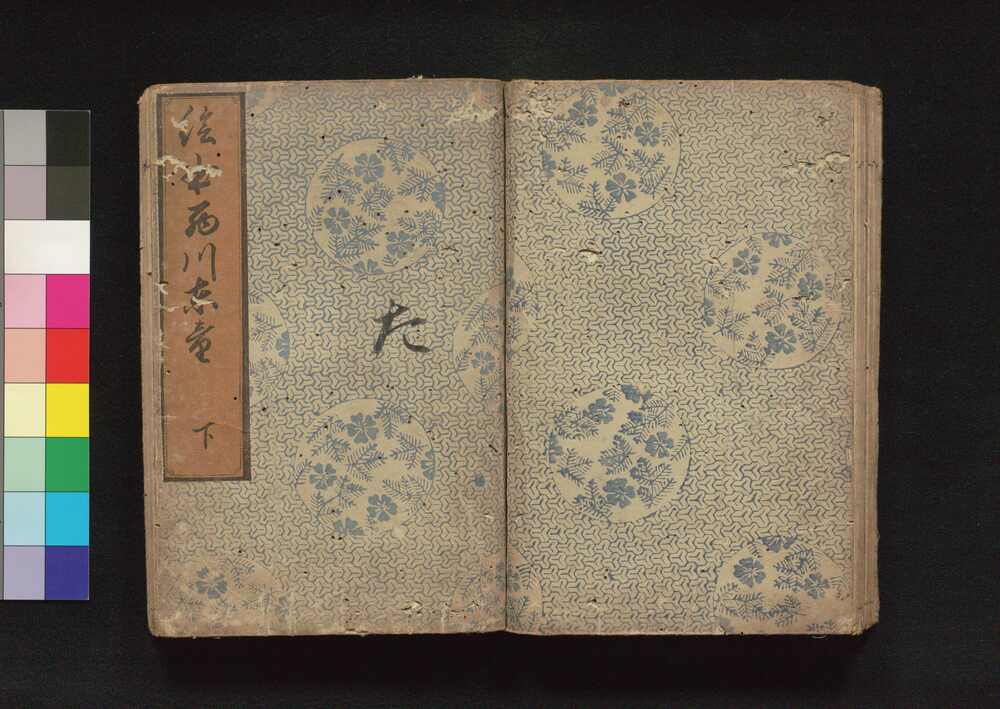 絵本西川東童
下
た